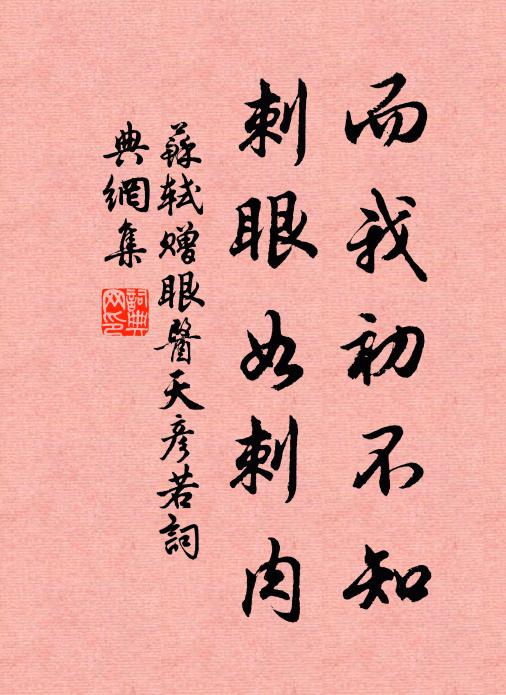 而我初不知
刺眼如刺肉
蘇軾贈眼醫天彥若詞
典網集
詞典
网印